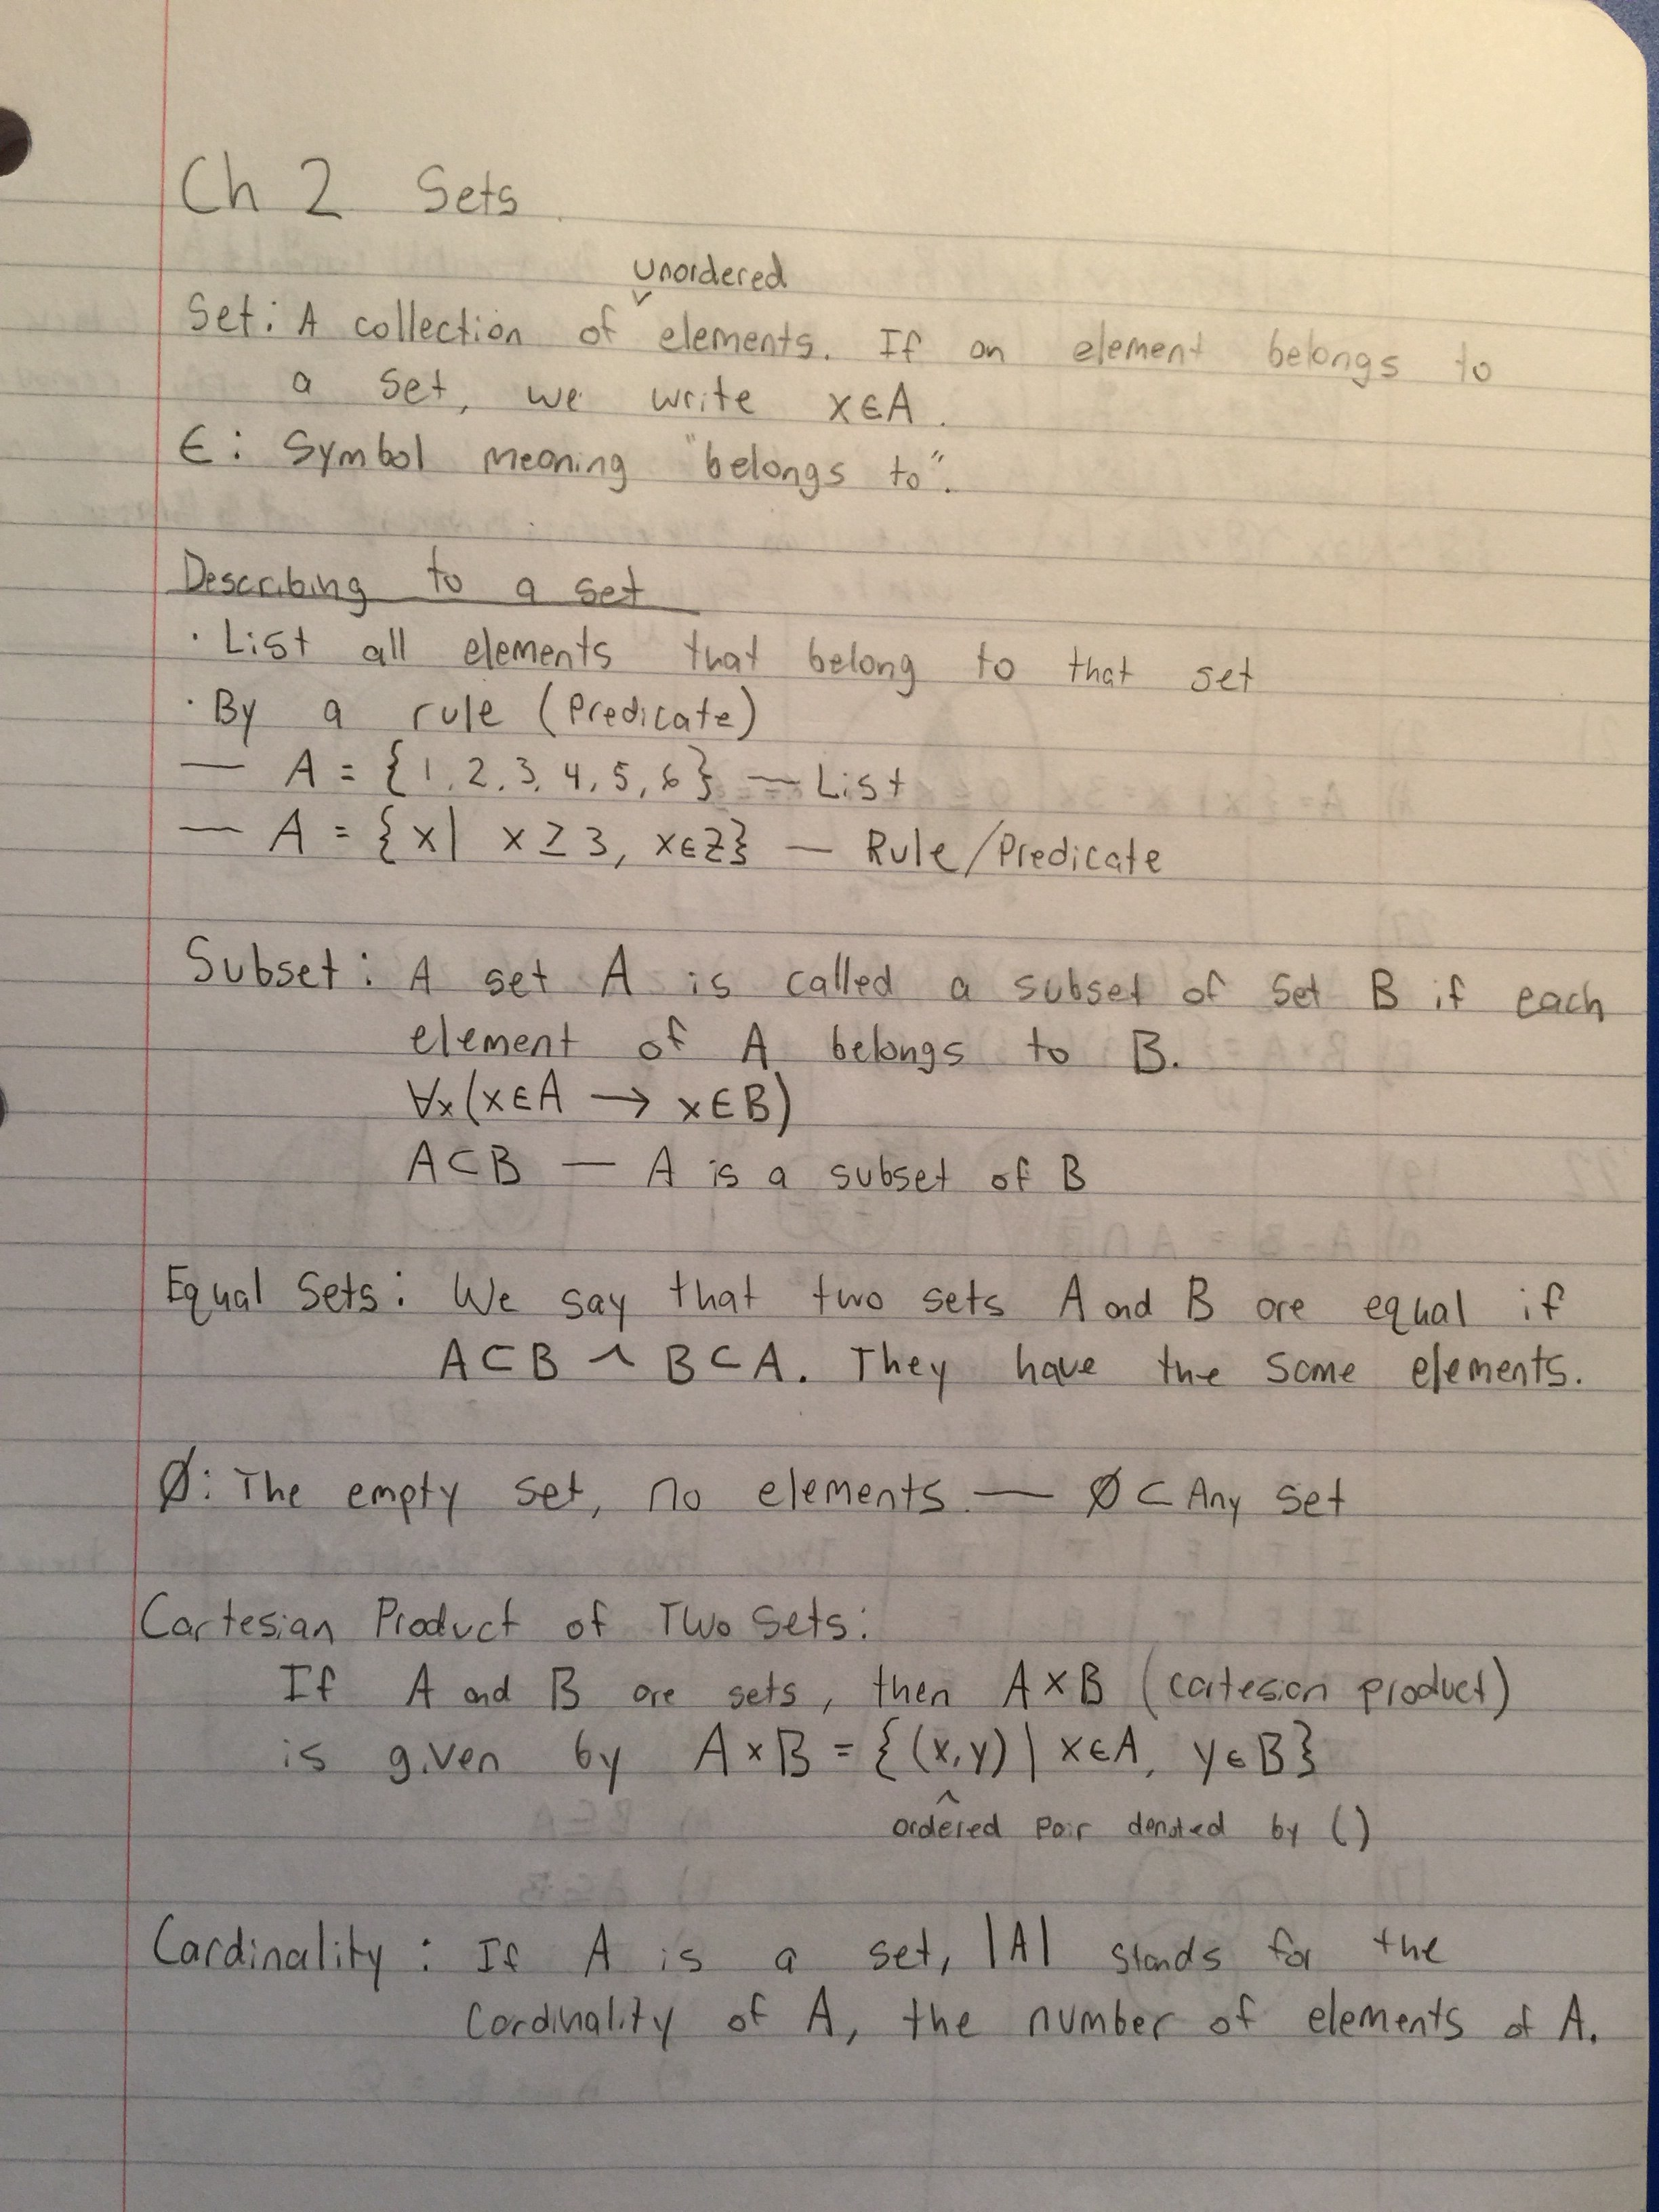 Ch 2 Sets
unordered
Set: A collection of elements. If an element belongs to
a set, we write x∈A.
∈: Symbol meaning "belongs to".
Describing to a set
· List all elements that belong to that set
· By a rule (Predicate)
— A = {1, 2, 3, 4, 5, 6} — List
— A = {x| x ≥ 3, x∈Z} — Rule/Predicate
Subset: A set A is called a subset of set B if each
element of A belongs to B.
∀x(x∈A → x∈B)
A⊂B — A is a subset of B
Equal Sets: We say that two sets A and B are equal if
A⊂B ∧ B⊂A. They have the same elements.
Ø: The empty set, no elements. — Ø ⊂ Any set
Cartesian Product of Two Sets:
If A and B are sets, then A×B (cartesian product)
is given by A×B = {(x,y) | x∈A, y∈B}
^
ordered pair denoted by ()
Cardinality: If A is a set, |A| stands for the
cardinality of A, the number of elements of A.